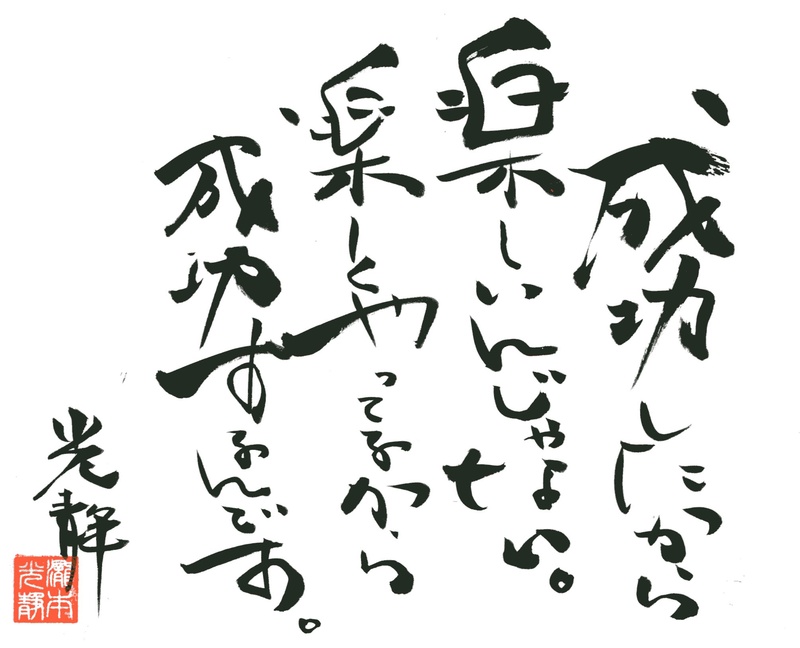 成功したから
楽しいんじゃない。
楽しくやってるから
成功するんです。
光静
瀧本
光静